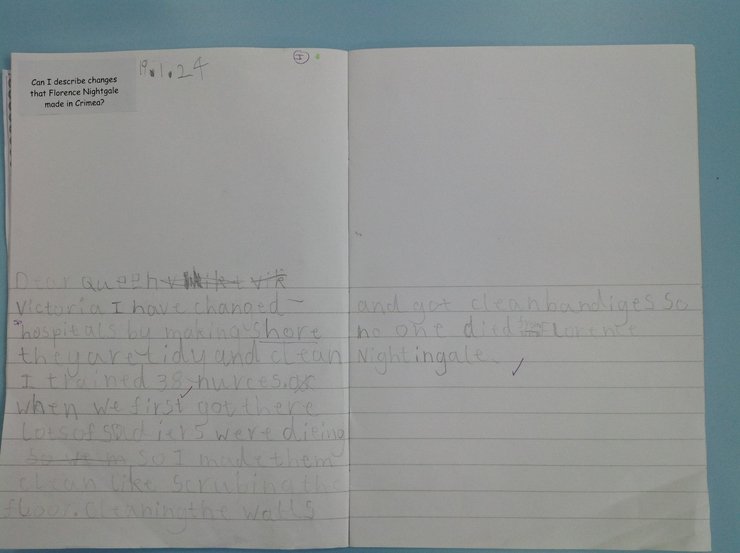 Can I describe changes
that Florence Nightgale
made in Crimea?
19.1.24
I
Dear Queen
Victoria I have changed
hospitals by making shore
they are tidy and clean
I trained 38 nurces.
when we first got there
Lots of soldiers were dieing
so I made them
clean like scrubing the
floor. cleaning the walls
and got clean bandiges so
no one died Florence
Nightingale.